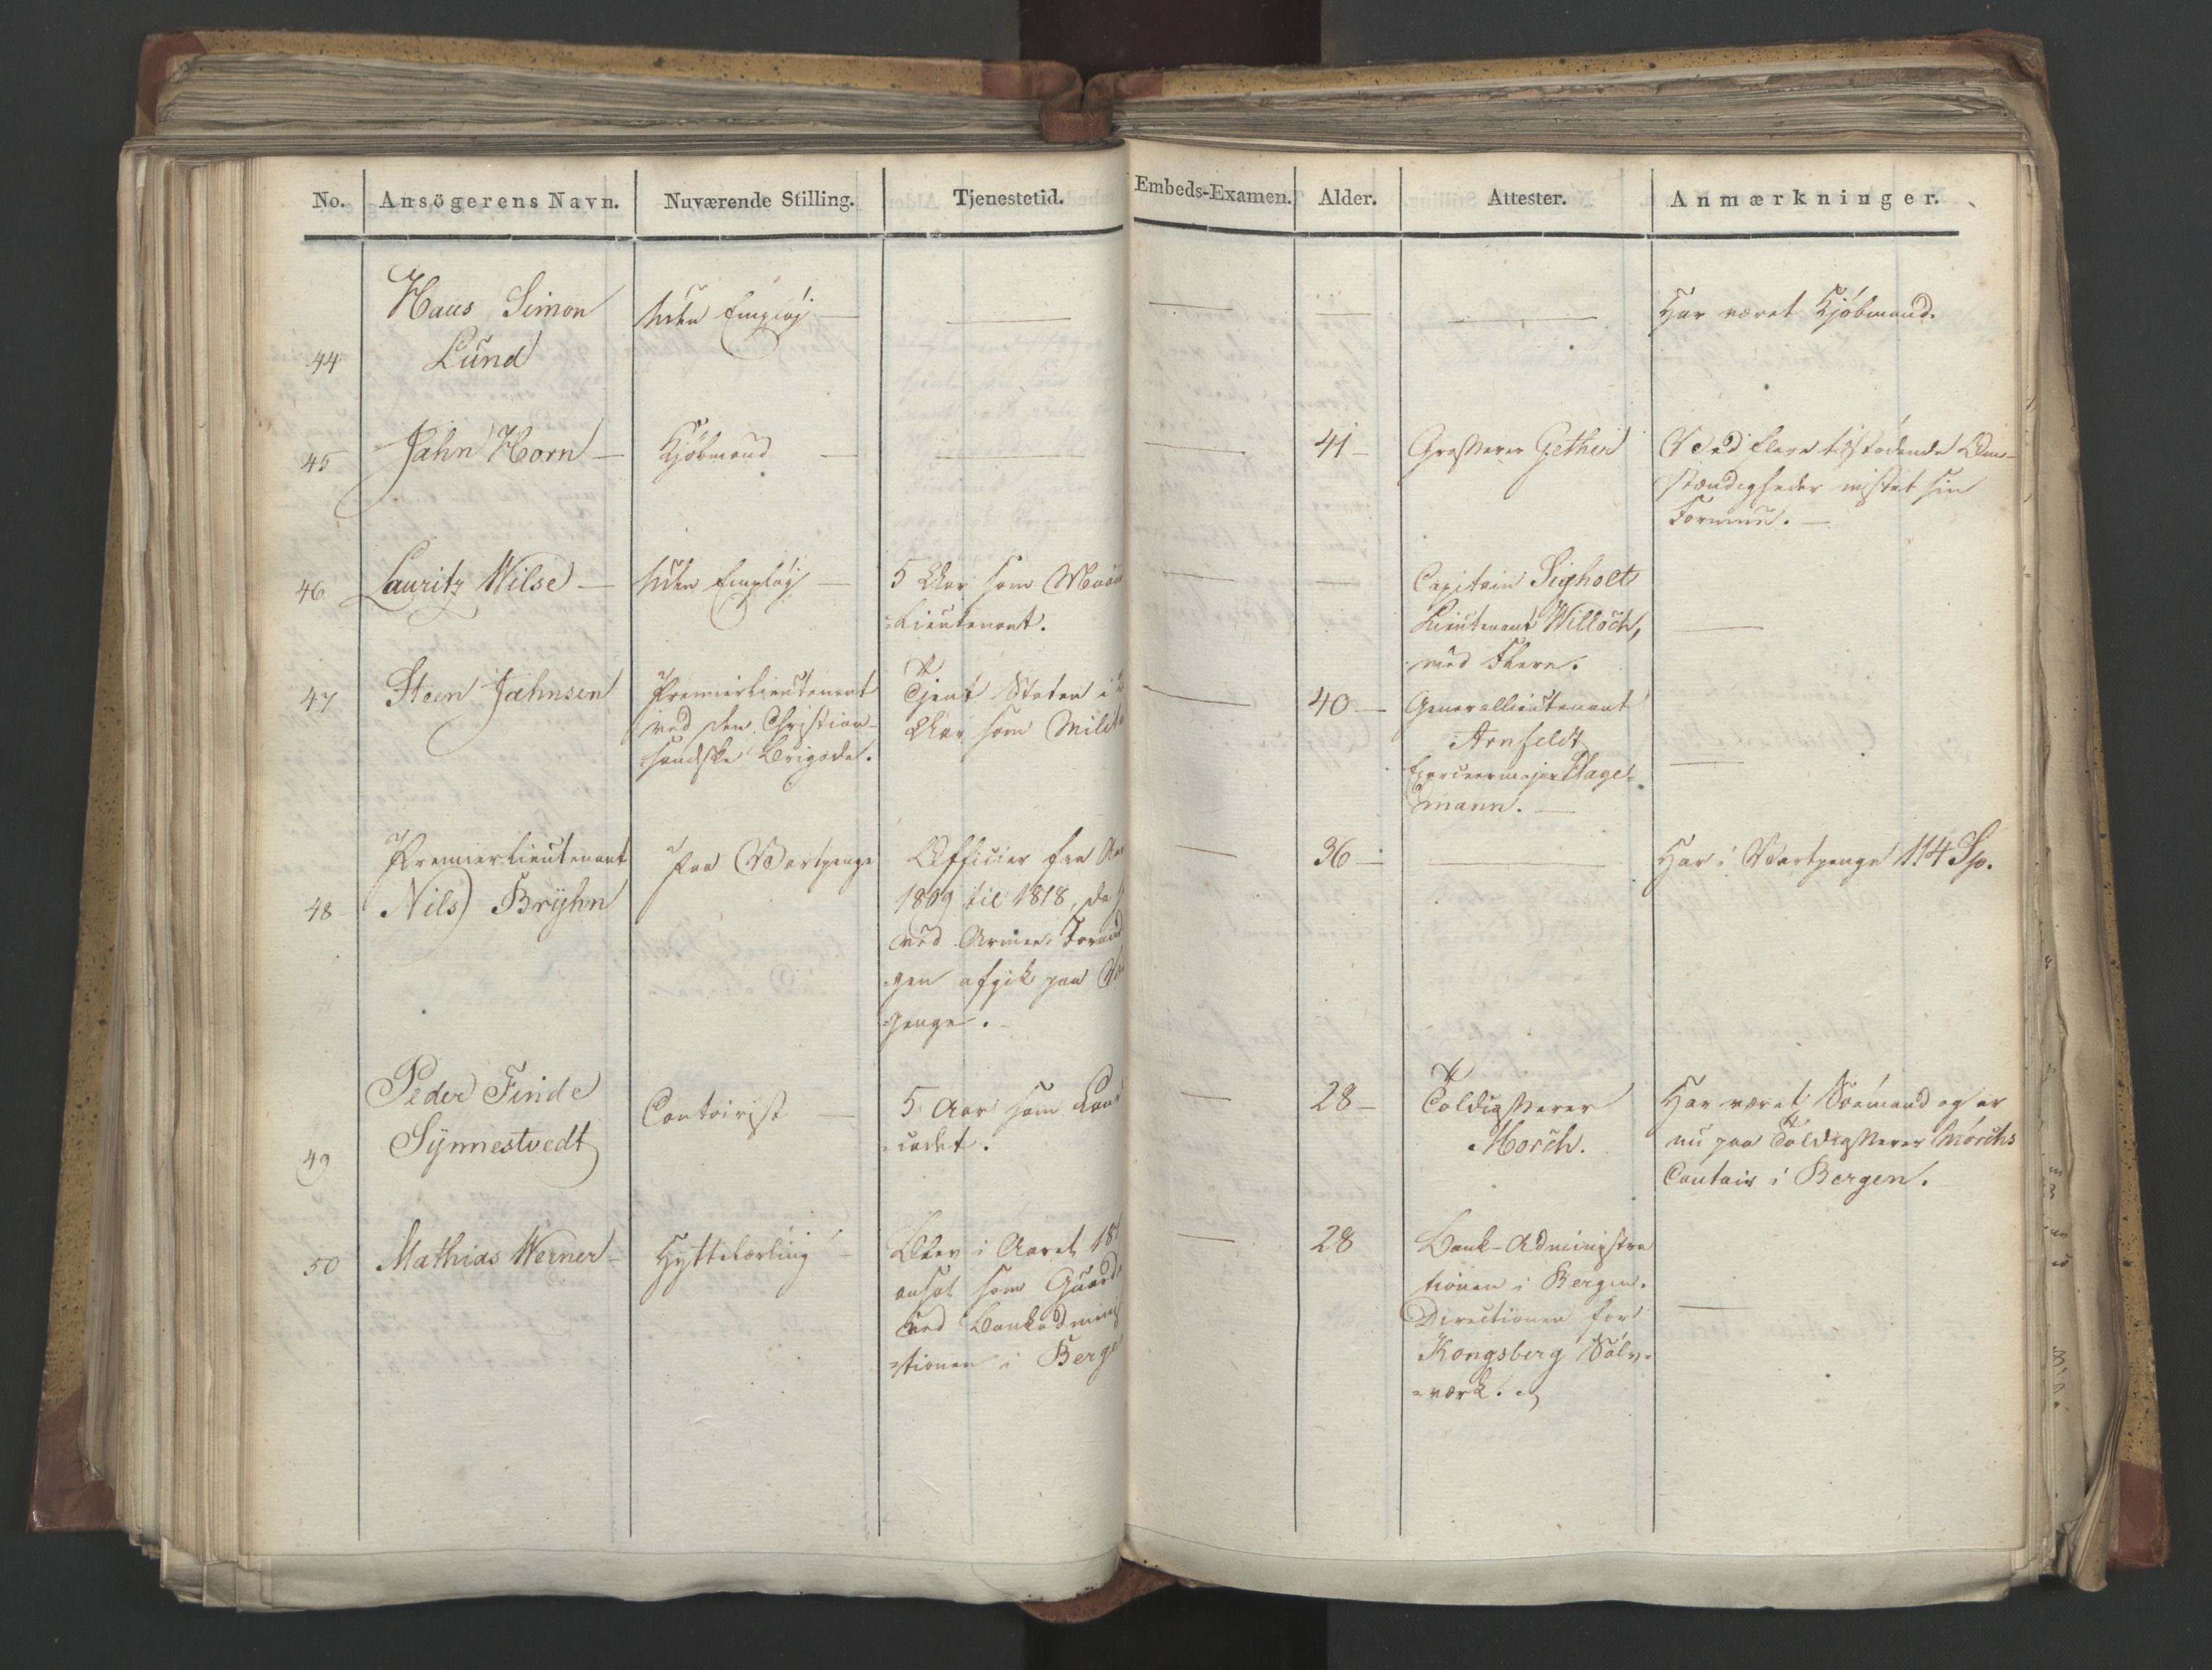 No. Ansögerens Navn. Nuværende Stilling. Tjenestetid. Embeds-Examen. Alder. Attester. Anmærkninger.
44 Hans Simon
Lund
Uden Employ —
Har været Kjøbmand.
45 Jahn Horn —
Kjøbmand —
41 —
Grosserer Gether
Ved flere tilstødende Om-
stændigheder mistet sin
Formue. —
46 Lauritz Wilse —
Uden Employ —
5 Aar som
Lieutenant.
Capitain Sigholt
Lieutenant Willoch,
med Flere.
47 Steen Jahnsen
Premierlieutenant
ved den Christian-
sandske Brigade.
Tjent Staten i
Aar som
40 —
Generallieutenant
Arnfeldt
Exerceermajor Hage-
mann. —
48 Premierlieutenant
Nils Brÿhn
Paa Vartpenge
Officier fra
1809 til 1818, da
ved Armee
gen afgik paa
penge. —
36 —
Har i Vartpenge 114 Sp.
49 Peder Finde
Sÿnnestvedt
Contoirist —
5 Aar som
cadet.
28 —
Toldinspecteur
Morch.
Har været Sømand og er
nu paa Morchs
Contoir i Bergen.
50 Mathias Werner —
Hyttelærling —
Blev i Aaret
ansat som
ved
tionen i
28
Bank-Administra
tionen i Bergen.
Directionen for
Kongsberg Sølv-
værk.